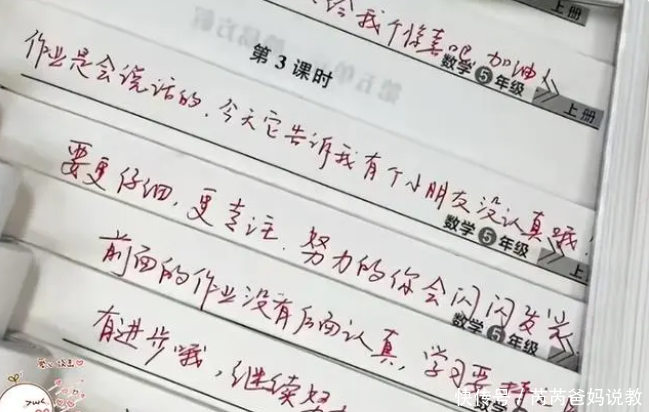 给我个惊喜吧 加油
数学5年级
上册
第3课时
作业是会说话的，今天它告诉我有个小朋友没认真哦
数学5年级
上
要更仔细，更专注，努力的你会闪闪发光
数学5年级
前面的作业没有后面认真，学习要
有进步哦，继续努
快传号/芮芮爸妈说教